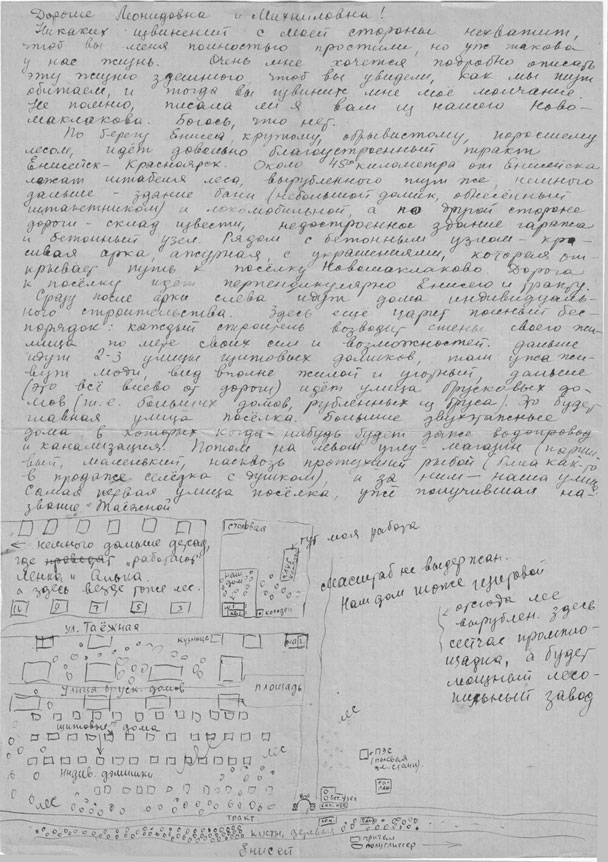 Дорогие Леонидовна и Михайловна!
Никаких извинений с моей стороны нехватит,
чтоб вы меня полностью простили, но уж такова
у нас жизнь. Очень мне хочется подробно описать
эту жизнь здешнюю, чтоб вы увидели, как мы тут
обитаем, и тогда вы извините мне моё молчание.
Не помню, писала ли я вам из нашего Ново-
маклакова. Боюсь, что нет.
По берегу Енисея крутому, обрывистому, поросшему
лесом, идёт довольно благоустроенный тракт
Енисейск-Красноярск. Около 45го километра от Енисейска
лежат штабеля леса, вырубленного тут же, немного
дальше - здание бани (небольшой домик, обнесённый
штакетником) и локомобильной, а по другой стороне
дороги - склад извести, недостроенное здание гаража
и бетонный узел. Рядом с бетонным узлом - кра-
сивая арка, ажурная, с украшениями, которая от-
крывает путь к посёлку Новомаклаково. Дорога
к посёлку идёт перпендикулярно Енисею и тракту.
Сразу после арки слева идут дома индивидуаль-
ного строительства. Здесь ещё царит полный бес-
порядок: каждый строитель возводит стены своего жи-
лища по мере своих сил и возможностей. Дальше
идут 2-3 улицы щитовых домиков, там уже жи-
вут люди, вид вполне жилой и уютный, дальше
(это всё влево от дороги) идёт улица брусковых до-
мов (т.е. больших домов, рубленных из бруса). Это будет
главная улица посёлка. Большие двухэтажные
дома, в которых когда-нибудь будет даже водопровод
и канализация. Потом на левом углу - магазин (парши-
вый, маленький, насквозь протухший рыбой (была как-то
в продаже селёдка с душком), и за ним - наша улица
Самая первая улица посёлка, уже получившая на-
звание "Таёжной"
столовая
тут моя работа
← немного дальше детсад,
где "работают"
Ленка и Алька.
а здесь везде тоже лес.
наш дом
колодец
11 9 7 5 3
Масштаб не выдержан.
Наш дом тоже щитовой
ул. Таёжная
кузница
маг
← отсюда лес
вырублен. здесь
сейчас промпло-
щадка, а будет
мощный лесо-
пильный завод
улица бруск. домов
площадь
щитовые дома
лес
лес
индив. домишки
ПЭС
(паровая
эл. стан.)
лес
бет. узел
тракт
кусты, деревья
Енисей